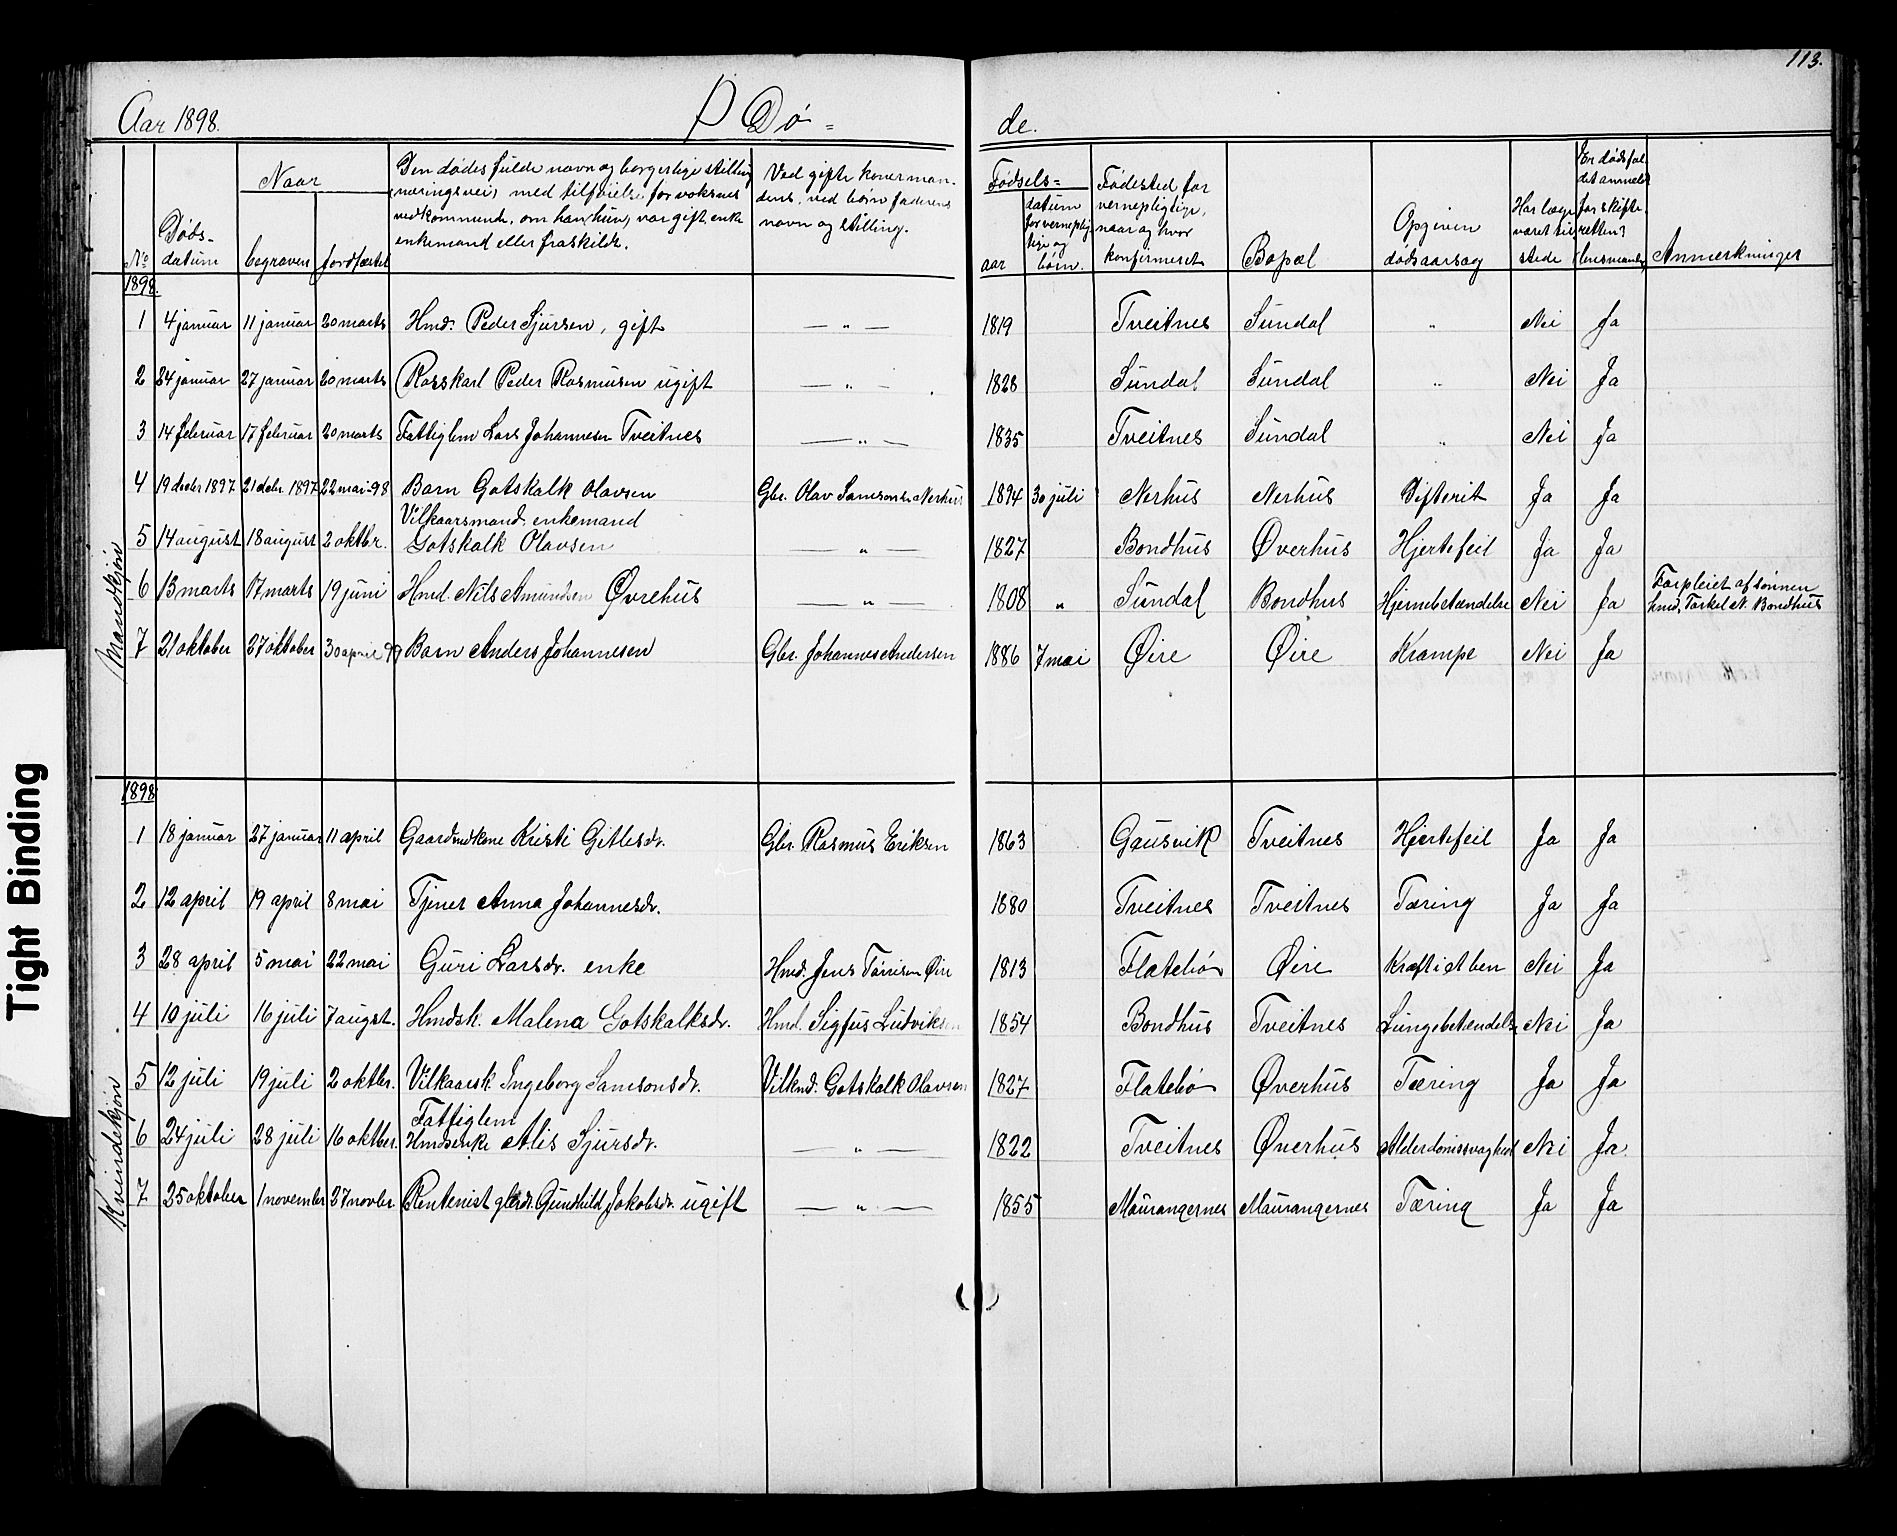 113.
Aar 1898. Dø= de.
No
Døds-datum
Naar
begraven
jordfæstet
Den dødes fulde navn og borgerlige stilling
(næringsvei) med tilføielse for voksnes
vedkommende, om han (hun) var gift, enke
enkemand eller fraskilt.
Ved gifte koner man-
dens, ved børn faderens
navn og stilling.
Fødsels=
aar
datum
for verneplig
tige og
børn.
Fødested for
vernepligtige,
naar og hvor
konfirmeret
Bopæl
Opgiven
dødsaarsag
Har læge
været til
stede
Er dødsfal
det anmeldt
for skifte-
retten?
Anmerkninger
Mandkjøn
1898.
1 4 januar 11 januar 20 marts Hmd. Peder Sjursen, gift — " — 1819 Tveitnes Sundal " Nei Ja
2 24 januar 27 januar 20 marts Røsskarl Peder Rasmusen ugift — " — 1828 Sundal Sundal " Nei Ja
3 14 februar 17 februar 20 marts Fattiglem Lars Johannesen Tveitnes — " — 1835 Tveitnes Sundal " Nei Ja
4 19 decbr 1897 21 decbr. 1897 22 mai-98 Barn Gotskalk Olavsen Gbr. Olav Samsonsen Nerhus 1894 30 juli Nerhus Nerhus Difterit Ja Ja
Vilkaarsmand. enkemand
5 14 august 18 august 2 oktbr. Gotskalk Olavsen — " — 1827 Bondhus Øverhus Hjertefeil Ja Ja
6 13 marts 17 marts 19 juni Hmd. Nils Amundsen Øvrehus — " — 1808 " Sundal Bondhus Hjernebetændelse Nei Ja Forpleiet af sønnen
hmd. Torkel N. Bondhus
7 21 oktober 27 oktober 30 april 99 Barn Anders Johannesen Gbr. Johannes Andersen 1886 7 mai Øire Øire Krampe Nei Ja
Kvindekjøn
1898
1 18 januar 27 januar 11 april Gaardmdkone Kristi Gitlesdr. Gbr. Rasmus Eriksen 1863 Gausvik Tveitnes Hjertefeil Ja Ja
2 12 april 19 april 8 mai Tjener Anna Johannesdr. 1880 Tveitnes Tveitnes Tæring Ja Ja
3 28 april 5 mai 22 mai Guri Larsdr. enke Hmd. Jens Tørrisen Øire 1813 Flatebø Øire Kræft i et ben Nei Ja
4 10 juli 16 juli 7 augst. Hmdsk. Malena Gotskalksdr. Hmd. Sigfus Ludviksen 1854 Bondhus Tveitnes Lungebetændelse Nei Ja
5 12 juli 19 juli 2 oktbr. Vilkaarsk. Ingeborg Samsonsdr. Vilkmd. Gotskalk Olavsen 1827 Flatebø Øverhus Tæring Ja Ja
Fattiglem
6 24 juli 28 juli 16 oktber. Hmdsenke Alis Sjursdr. — " — 1822 Tveitnes Øverhus Alderdomssvaghed Nei Ja
7 25 oktober 1 november 27 novber. Rentenist Gunhild Jakobsdr. ugift — " — 1855 Maurangernes Maurangernes Tæring Ja Ja
Tight Binding